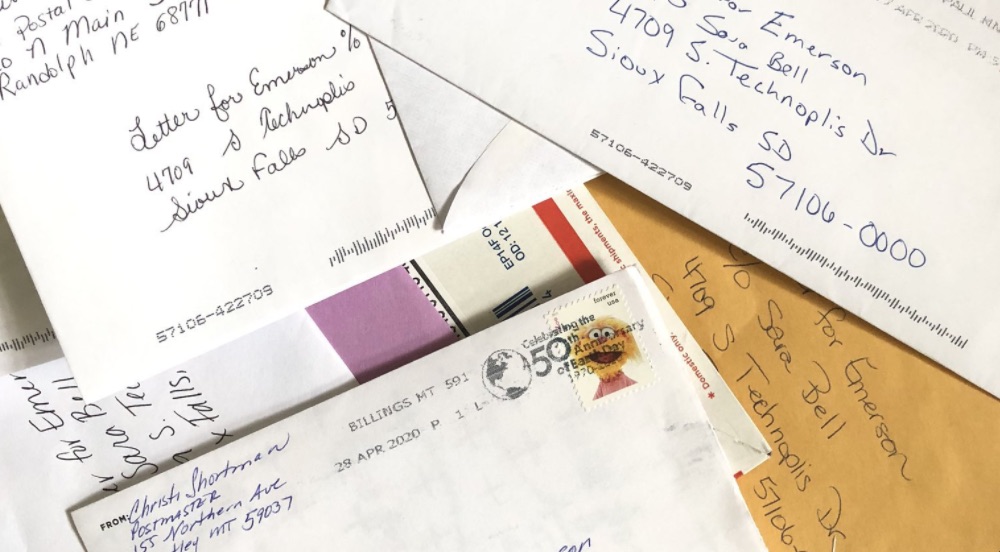 Postal
N Main
Randolph NE 68771
Letter for Emerson %
4709 S Technoplis
Sioux Falls SD 5
57106-422709
APR 2020 PM 5
for Emerson
Sara Bell
4709 S. Technoplis Dr
Sioux Falls SD
57106-0000
57106-422709
shipments, the maxi
EP14F
OD: 121
* Domestic only.
for Emerson
c/o Sara Bell
4709 S Technoplis Dr
57106
for Emer
Sara Bell
S. Te
Falls,
forever
usa
Celebrating the
50th Anniversary
of Earth Day
1970-
BILLINGS MT 591
28 APR 2020 P 1 L
FROM: Christi Shortman
Postmaster
155 Northern Ave
tley MT 59037
son